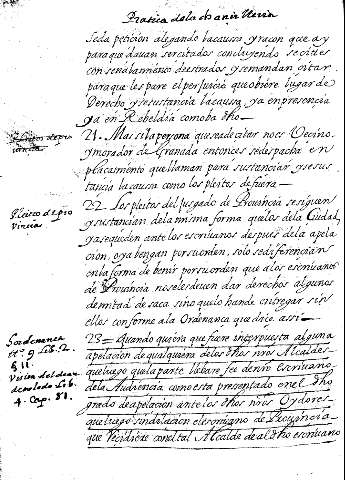 Pratica de la chanzilleria
se da peticion alegando la causa y racon que ay
para que davan ser citados concluyendo se cite
con senalamiento de estrados y se mandan citar
para que les pare el perjuicio que obiere lugar de
Derecho y se sustancia la causa, ya en presencia
ya en Rebeldia como ba dho
21. Mas si la persona que se a de citar no es Vecino
y morador de Granada entonces se despacha en
placamiento que llaman para sustanciar y se sus
tancia la causa como los pleitos de fuera
Pleitos de pro
vincia
22. Los pleitos del juzgado de Provincia se siguen
y sustancian de la misma forma que los de la Ciudad,
ya se queden ante los escrivanos despues de la apela
cion, o ya bengan por su orden, solo se diferencian
en la forma de benir por su orden que a los escrivanos
de Provincia no se les deven dar derechos algunos
de mitad de saca sino que lo han de entregar sin
ellos conforme a la Ordenanca que dice assi
Lib. 2.
§ 11.
Lib.
4. Cap. 81.
23 = Quando quiera que fuere interpuesta alguna
apelacion de qualquiera de los dhos nros Alcaldes
que luego que la parte
de la Audiencia como esta presentado en el dho
grado de apelacion ante los dhos nros Oydores
que luego sin dilacion el escrivano de Provincia
que Recidiere con el tal Alcalde de al dho escrivano